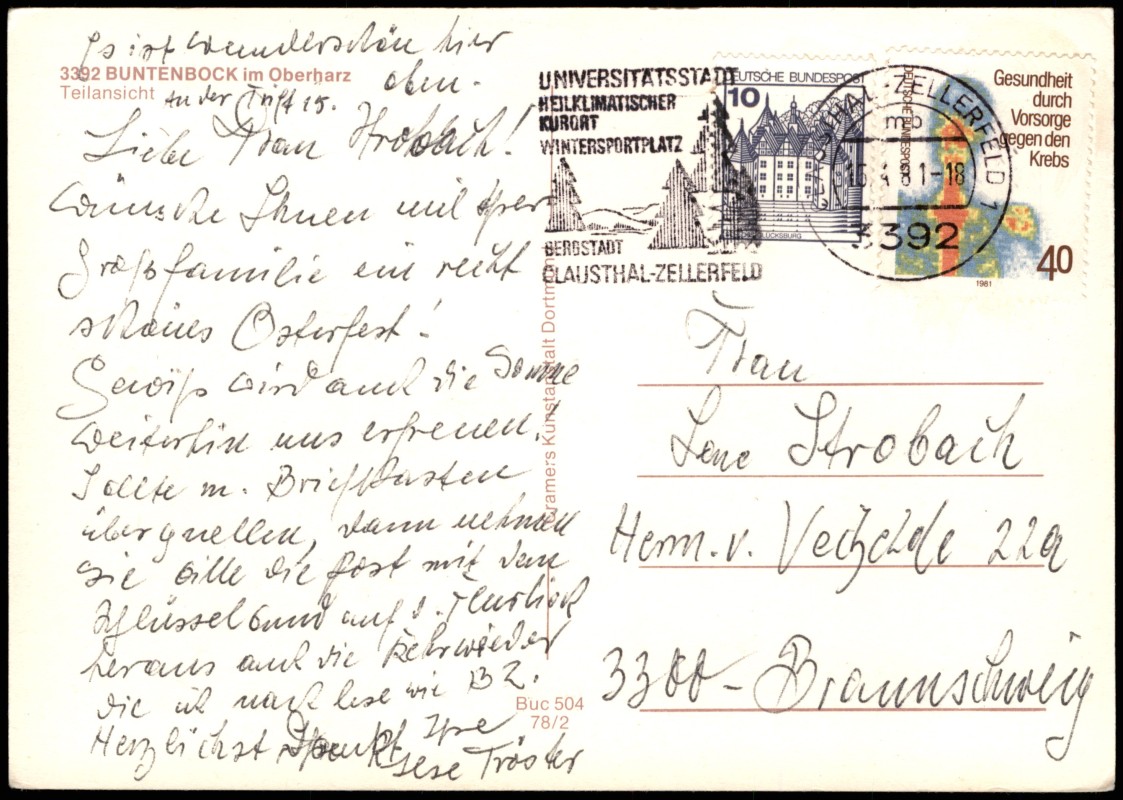 Es ist wunderschön hier
oben.
3392 BUNTENBOCK im Oberharz
Teilansicht
An der Trift 15.
Liebe Frau Strobach!
Wünsche Ihnen mit Ihrer
Großfamilie ein recht
schönes Osterfest!
Gewiß wird auch die Sonne
weiterhin uns erfreuen.
Sollte m. Briefkasten
überquellen, dann nehmen
Sie bitte die Post mit dem
Schlüsselbund auf d.
heraus auch die
die ich nach lese wie BZ.
Herzlichst Ihre
Tröster
Cramers Kunstanstalt Dortmund
Buc 504
78/2
UNIVERSITÄTSSTADT
HEILKLIMATISCHER
KURORT
WINTERSPORTPLATZ
BERGSTADT
CLAUSTHAL-ZELLERFELD
DEUTSCHE BUNDESPOST
10
GLÜCKSBURG
CLAUSTHAL-ZELLERFELD 1
mb
81-18
3392
DEUTSCHE BUNDESPOST
Gesundheit
durch
Vorsorge
gegen den
Krebs
40
1981
Frau
Lene Strobach
Herm. v. Vechelde 22a
3300 - Braunschweig